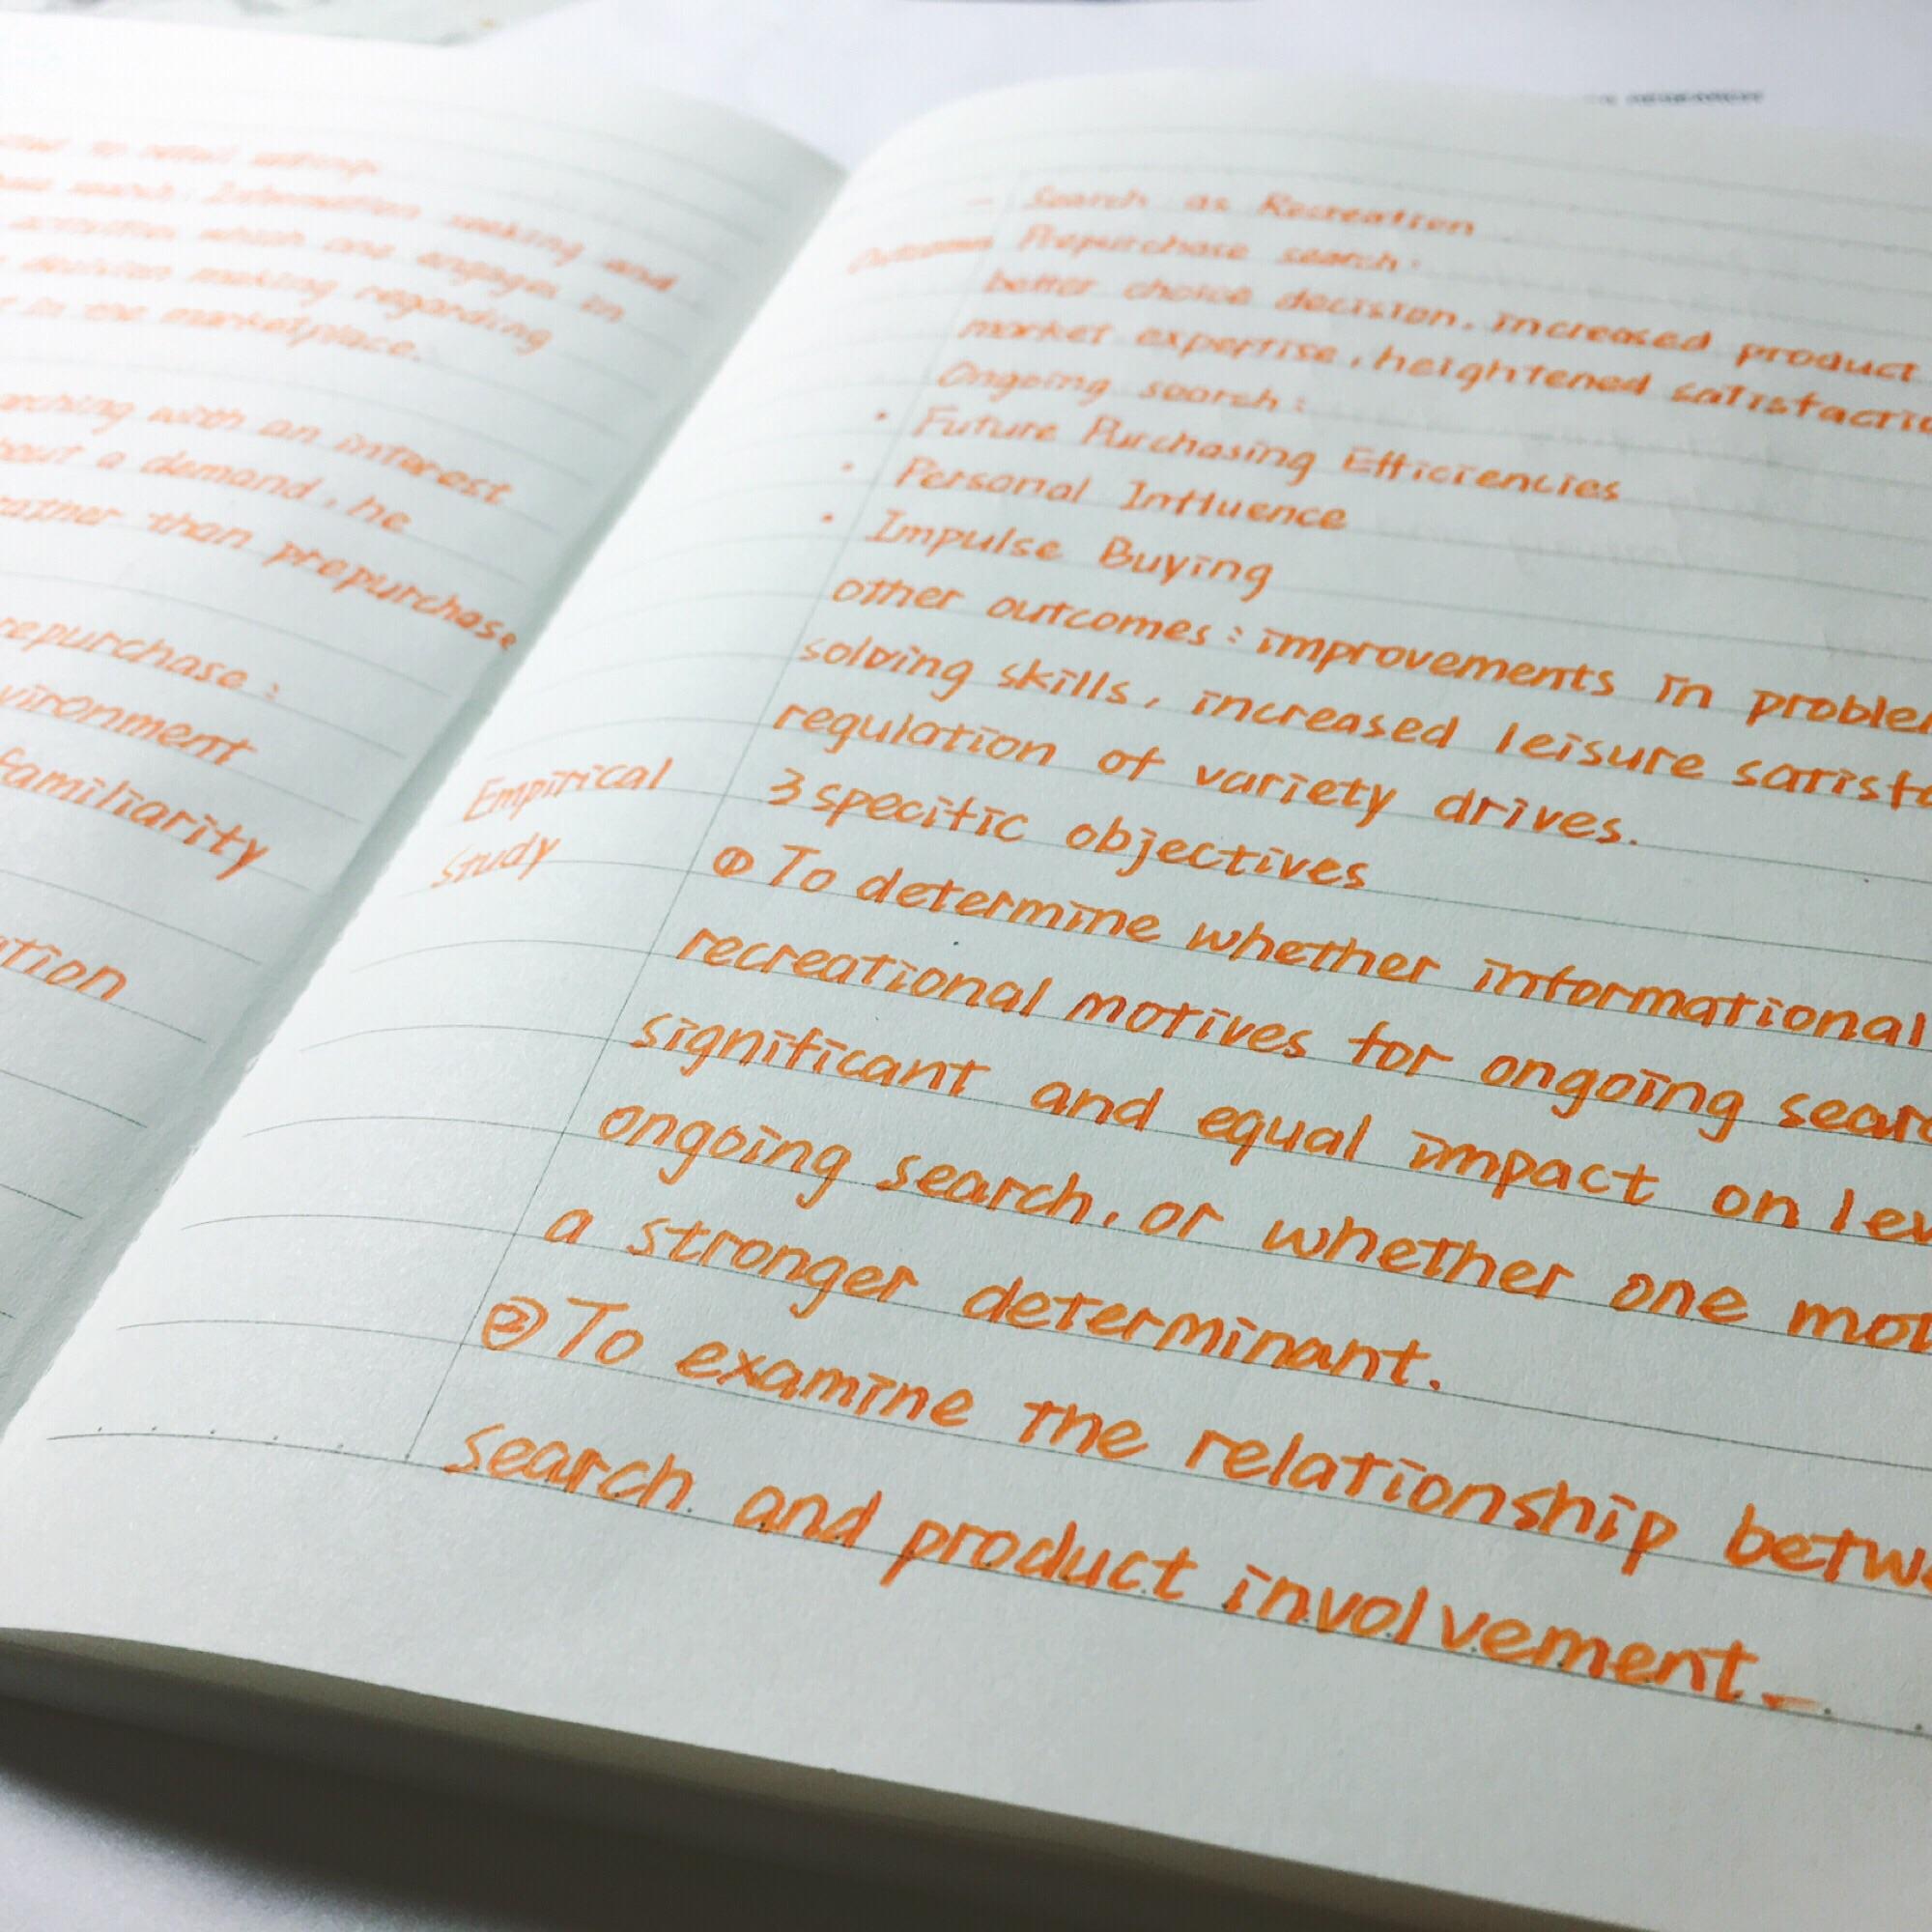 to retail settings
search: Information seeking and
activities which one engages in
decision making regarding
in the marketplace.
with an interest
a demand, he
rather than prepurchase
familiarity
— Search as Recreation
Outcomes Prepurchase search:
better choice decision, increased product
market expertise, heightened
Ongoing search:
• Future Purchasing Efficiencies
• Personal Influence
• Impulse Buying
other outcomes: improvements in
solving skills, increased leisure
regulation of variety drives.
Empirical 3 specific objectives
study ① To determine whether informational
recreational motives for ongoing
significant and equal impact on
ongoing search, or whether one
a stronger determinant.
② To examine the relationship
search and product involvement